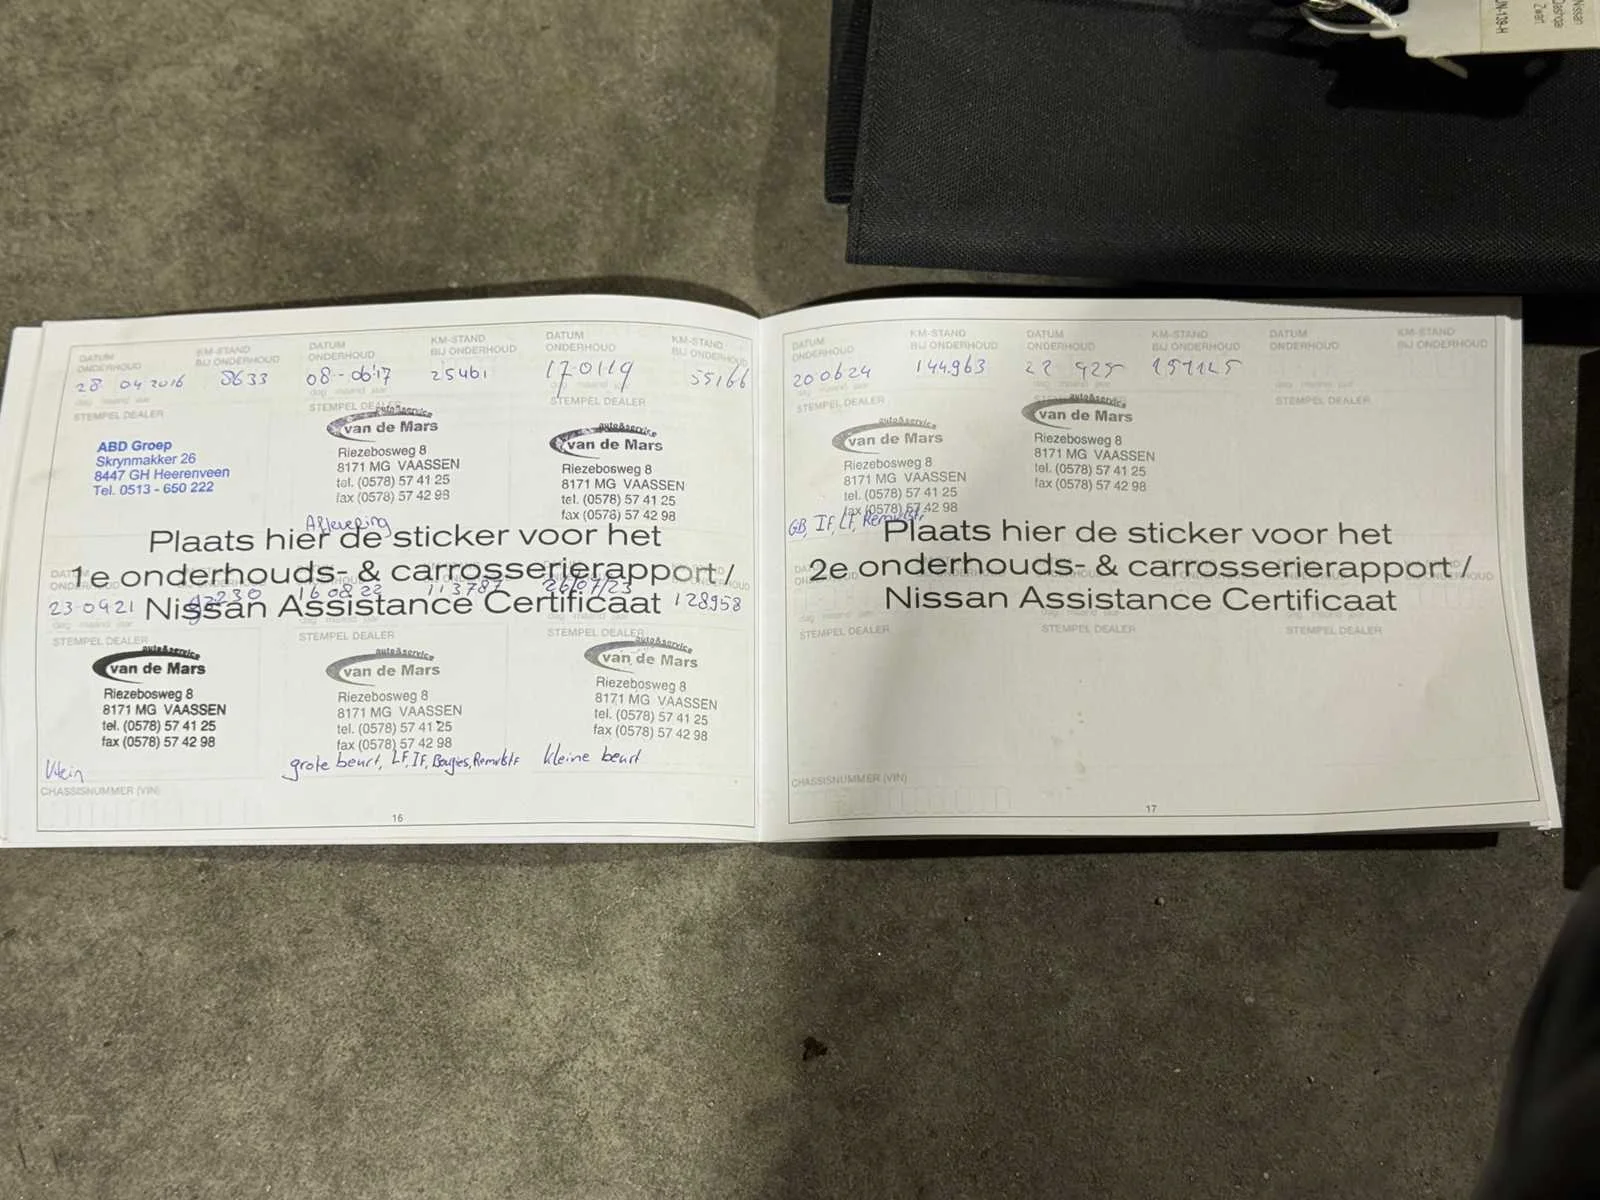 Nissan
Qashqai
Zwart
DATUM ONDERHOUD
KM-STAND BIJ ONDERHOUD
DATUM ONDERHOUD
KM-STAND BIJ ONDERHOUD
DATUM ONDERHOUD
KM-STAND BIJ ONDERHOUD
28 04 2016 8633 08-06'17 25461 17-01-19 55166
dag maand jaar
STEMPEL DEALER
STEMPEL DEALER
STEMPEL DEALER
ABD Groep
Skrynmakker 26
8447 GH Heerenveen
Tel. 0513 - 650 222
auto&service
van de Mars
Riezebosweg 8
8171 MG VAASSEN
tel. (0578) 57 41 25
fax (0578) 57 42 98
Aflevering
auto&service
van de Mars
Riezebosweg 8
8171 MG VAASSEN
tel. (0578) 57 41 25
fax (0578) 57 42 98
Plaats hier de sticker voor het
1e onderhouds- & carrosserierapport /
Nissan Assistance Certificaat
23-0921 16 08 22 113787 26/07/23 128958
STEMPEL DEALER
STEMPEL DEALER
STEMPEL DEALER
auto&service
van de Mars
Riezebosweg 8
8171 MG VAASSEN
tel. (0578) 57 41 25
fax (0578) 57 42 98
Klein
auto&service
van de Mars
Riezebosweg 8
8171 MG VAASSEN
tel. (0578) 57 41 25
fax (0578) 57 42 98
grote beurt, LF, IF, Bougies, Remvlstf
auto&service
van de Mars
Riezebosweg 8
8171 MG VAASSEN
tel. (0578) 57 41 25
fax (0578) 57 42 98
kleine beurt
CHASSISNUMMER (VIN)
16
DATUM ONDERHOUD
KM-STAND BIJ ONDERHOUD
DATUM ONDERHOUD
KM-STAND BIJ ONDERHOUD
DATUM ONDERHOUD
KM-STAND BIJ ONDERHOUD
20 06 24 144963 22 925 157125
STEMPEL DEALER
STEMPEL DEALER
auto&service
van de Mars
Riezebosweg 8
8171 MG VAASSEN
tel. (0578) 57 41 25
fax (0578) 57 42 98
GB, IF, LF, Remvlstf
auto&service
van de Mars
Riezebosweg 8
8171 MG VAASSEN
tel. (0578) 57 41 25
fax (0578) 57 42 98
Plaats hier de sticker voor het
2e onderhouds- & carrosserierapport /
Nissan Assistance Certificaat
STEMPEL DEALER
STEMPEL DEALER
STEMPEL DEALER
CHASSISNUMMER (VIN)
17